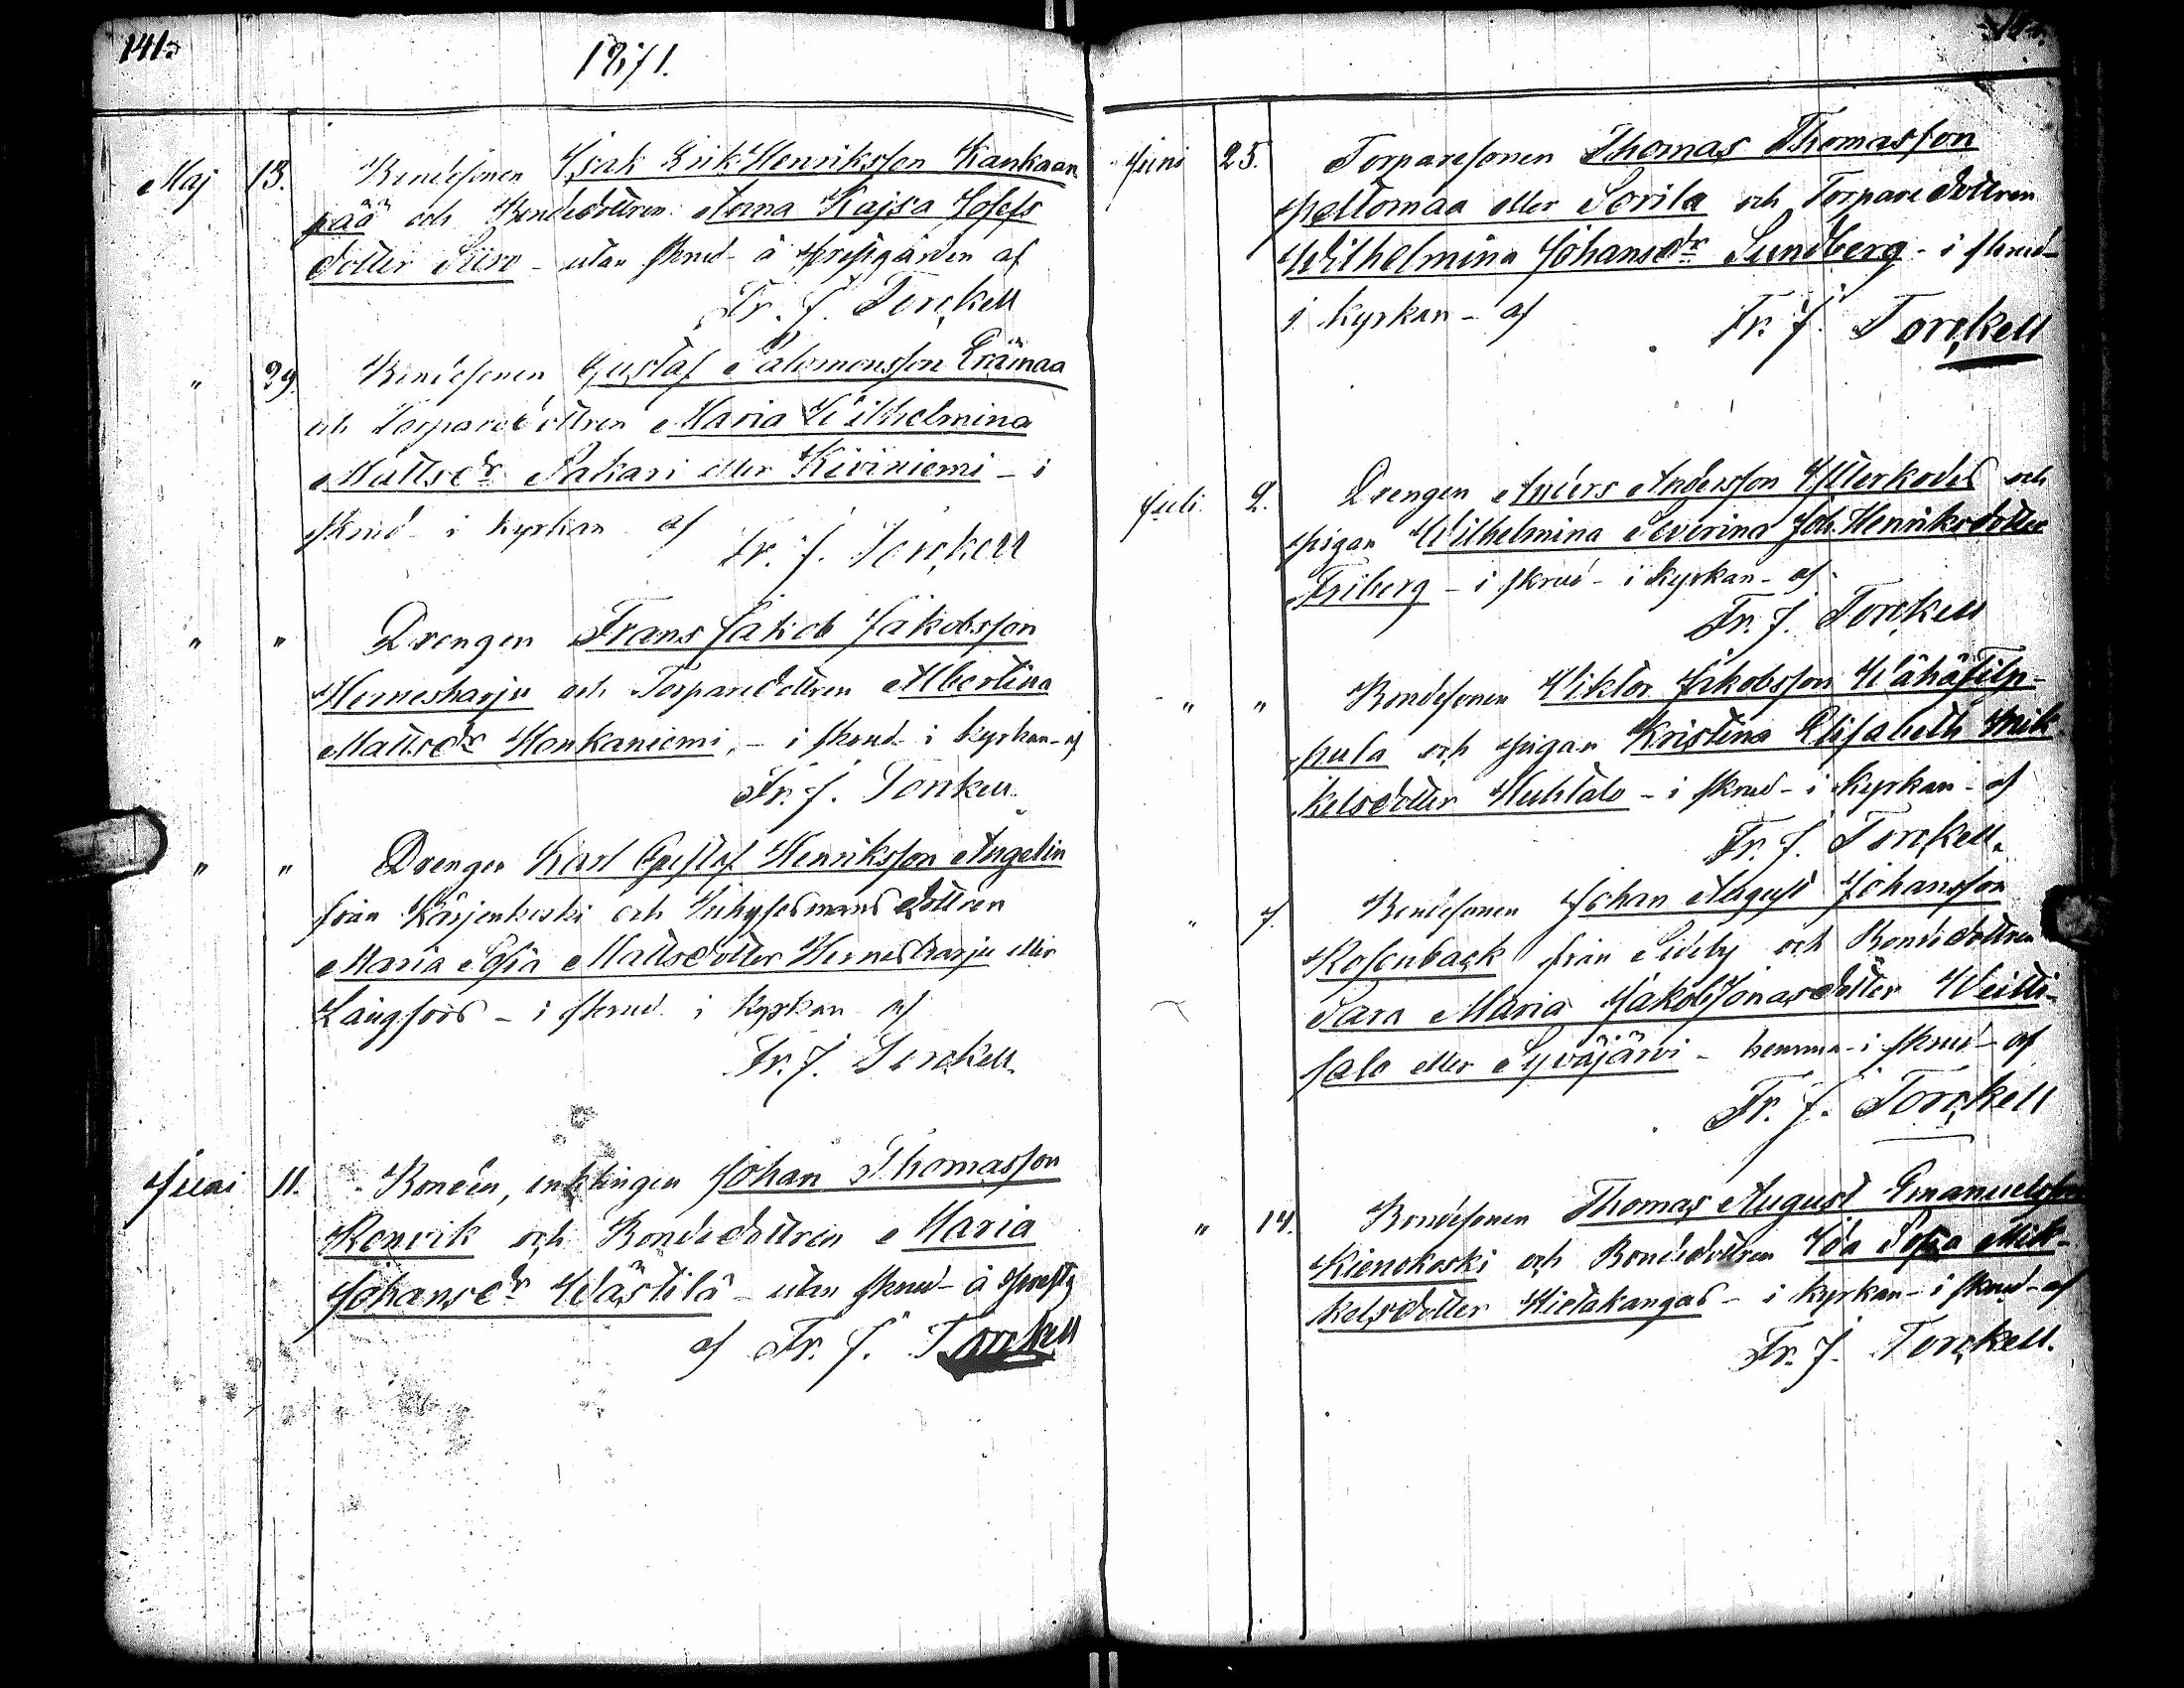 141.
1871.
Maj 13. Bondesonen Isak Erik Henriksson Kankaan
pää och Bondedottren Anna Kajsa Josefs
dotter Siiro - utan skrud - å Prestgården af
Fr. J. Torckell
" 29. Bondesonen Gustaf Salomonsson Erämaa
och Torparedottren Maria Wilhelmina
Mattsdr Sakari eller Kiviniemi - i
skrud - i kyrkan af
Fr. J. Torckell
" " Drengen Frans Jakob Jakobsson
Hernesharju och Torparedottren Albertina
Mattsdr Honkaniemi, - i skrud - i kyrkan - af
Fr. J. Torckell.
" " Drengen Karl Gustaf Henriksson Angelin
från Kärjenkoski och Inhysesmans dottren
Maria Sofia Mattsdotter Hernesharju eller
Långfors - i skrud i kyrkan af
Fr. J. Torckell.
Juni 11. Bonden, enklingen Johan Thomasson
Renvik och Bondedottren Maria
Johansdr Wästilä - utan skrud - å Prestg
af Fr. J. Torckell
Juni 25. Torparesonen Thomas Thomasson
Peltomaa eller Sorila och Torparedottren
Wilhelmina Johansdr Sundberg - i skrud -
i kyrkan - af Fr. J. Torckell
Juli 2. Drengen Anders Andersson och
pigan Wilhelmina Severina Joh. Henriksdotter
Friberg - i skrud - i kyrkan - af
Fr. J. Torckell
" " Bondesonen Viktor Jakobsson Wähäfilp-
pula och pigan Kristina Elisabeth Mik-
kelsdotter Huhtala - i skrud - i kyrkan - af
Fr. J. Torckell.
" 7. Bondesonen Johan August Johansson
Rosenback från Sideby och Bondedottren
Sara Maria Jakob Jonasdotter Weitti-
salo eller Syväjärvi - hemma - i skrud - af
Fr. J. Torckell
" 14. Bondesonen Thomas August Emanuelsson
Kienokoski och Bondedottren Ida Sofia Mik-
kelsdotter Hietakangas - i kyrkan - i skrud - af
Fr. J. Torckell.